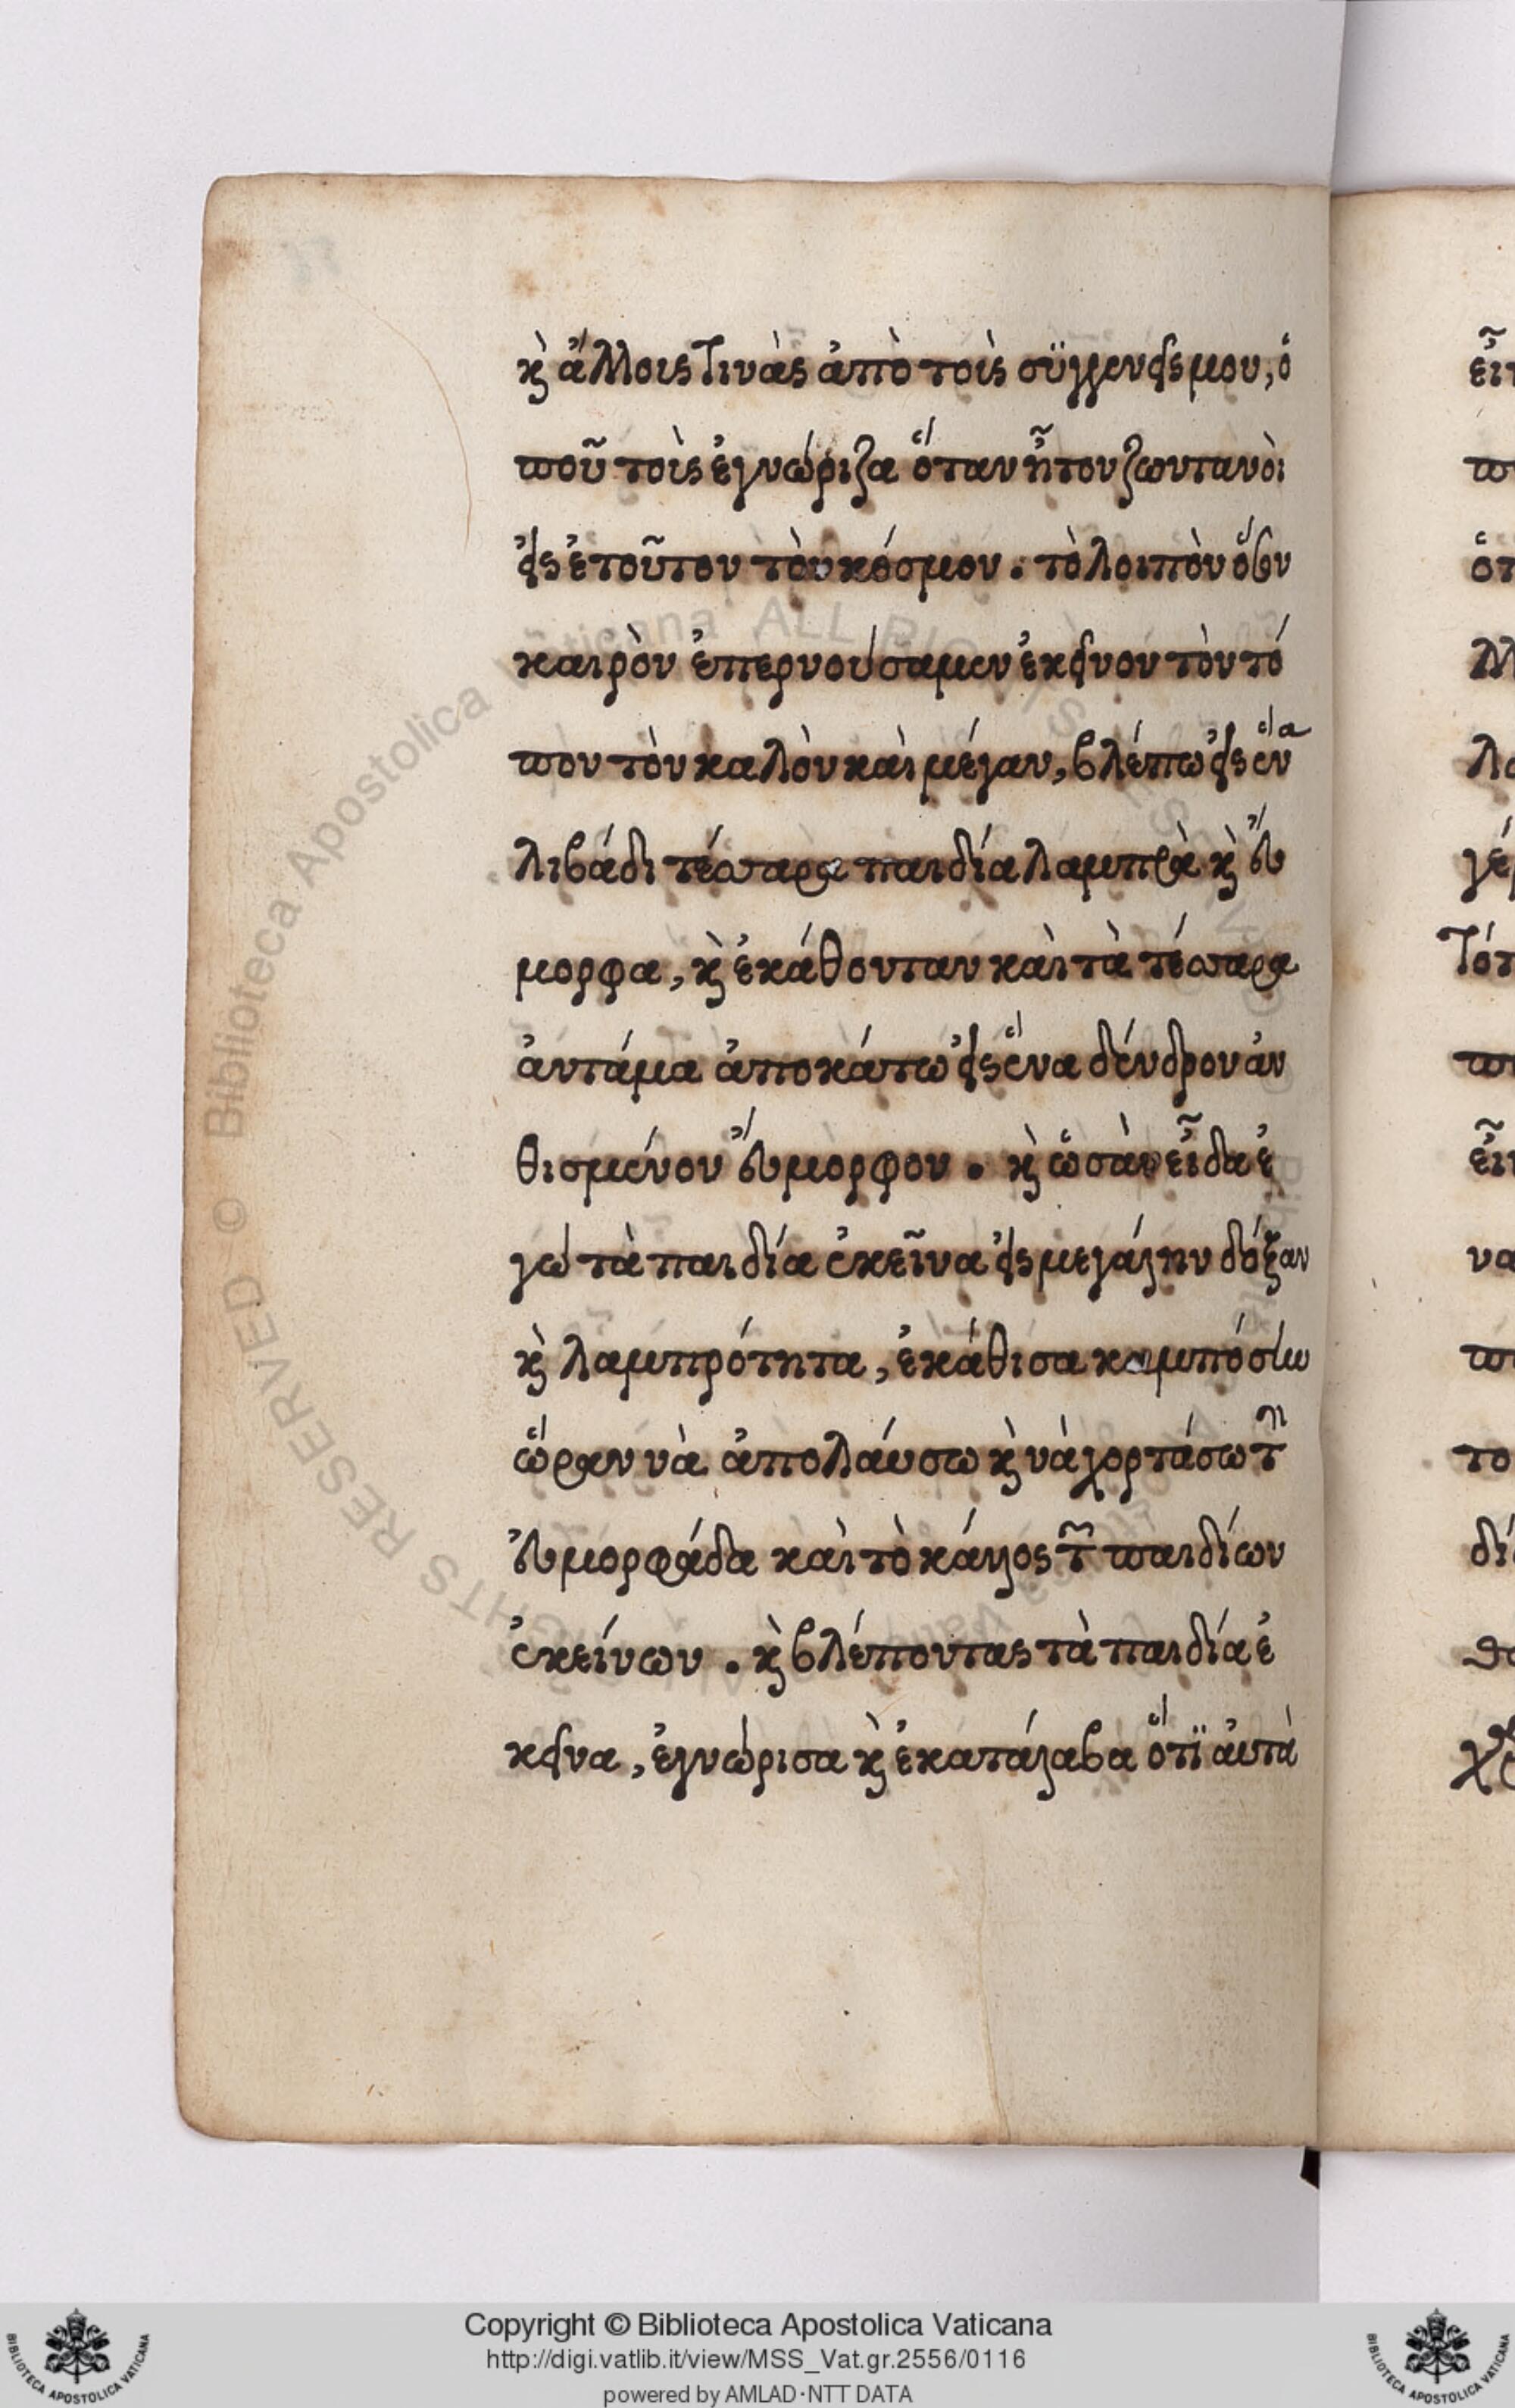 κ̀ ἄλλοις τινὰς ἀπὸ τοὶς σϋγγενεῖς μου, ὁ
ποῦ τοὶς ἐγνώριζα ὅταν ἦτον ζωντανοὶ
εἰς ἐτοῦτον τὸν κόσμον. τὸ λοιπὸν ὅθεν
καιρὸν ἐπερνούσαμεν ἐκεῖνον τὸν τό
πον τὸν καλὸν καὶ μέγαν, βλέπω εἰς ἕνα
λιβάδι τέσσαρα παιδία λαμπρὰ κ̀ εὔ
μορφα, κ̀ ἐκάθουνταν καὶ τὰ τέσσαρα
ἀντάμα ἀποκάτω εἰς ἕνα δένδρον ἀν
θισμένον εὔμορφον. κ̀ ὡσὰν εἶδα ἐ
γὼ τὰ παιδία ἐκεῖνα εἰς μεγάλην δόξαν
κ̀ λαμπρότητα, ἐκάθισα καμπόσην
ὥραν νὰ ἀπολάυσω κ̀ νὰ χορτάσω τὴν
εὐμορφάδα καὶ τὸ κάλλος τῶν παιδίων
ἐκείνων. κ̀ βλέποντας τὰ παιδία ἐ
κεῖνα, ἐγνώρισα κ̀ ἐκατάλαβα ὅτϊ ἀυτὰ
Copyright © Biblioteca Apostolica Vaticana
http://digi.vatlib.it/view/MSS_Vat.gr.2556/0116
powered by AMLAD·NTT DATA